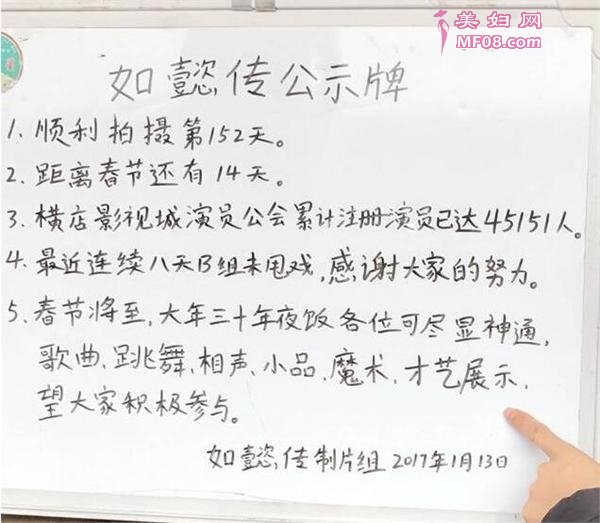 美妇网
MF08.com
如懿传公示牌
1. 顺利拍摄第152天。
2. 距离春节还有14天。
3. 横店影视城演员公会累计注册演员已达45151人。
4. 最近连续八天B组未甩戏,感谢大家的努力。
5. 春节将至,大年三十年夜饭各位可尽显神通,
歌曲、跳舞、相声、小品、魔术、才艺展示,
望大家积极参与。
如懿传制片组 2017年1月13日